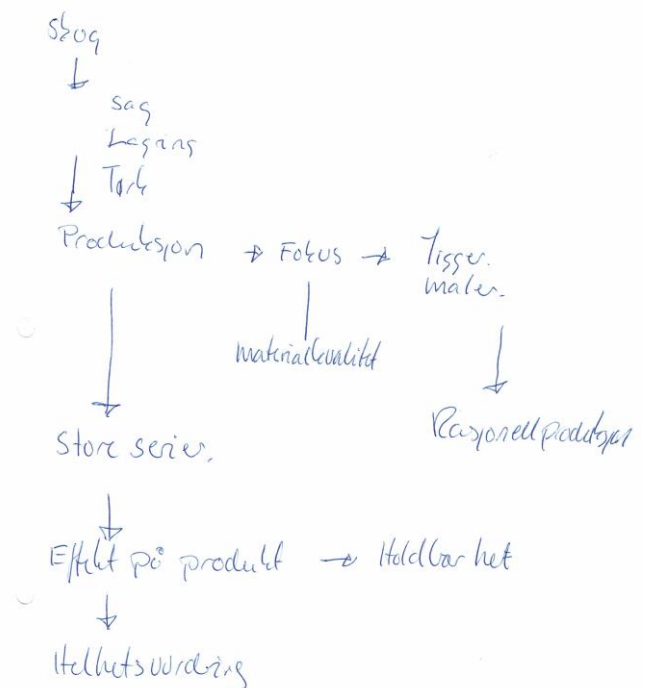 Skog
Sag
Lagring
Tørk
Produksjon → Fokus → Jigger.
maler.
materialkvalitet
Rasjonell produksjon
Store serier.
Effekt på produkt → Holdbarhet
Helhetsvurdring